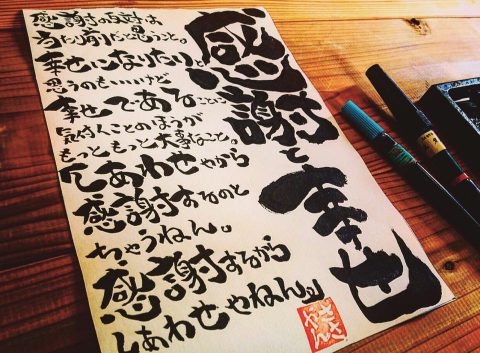 感謝と幸せ
感謝の反対は
当たり前だと思うこと。
幸せになりたいと
思うのもいいけど
幸せであることに
気付くことのほうが
もっともっと大事なこと。
しあわせやから
感謝するのと
ちゃうねん。
感謝するから
しあわせやねん。